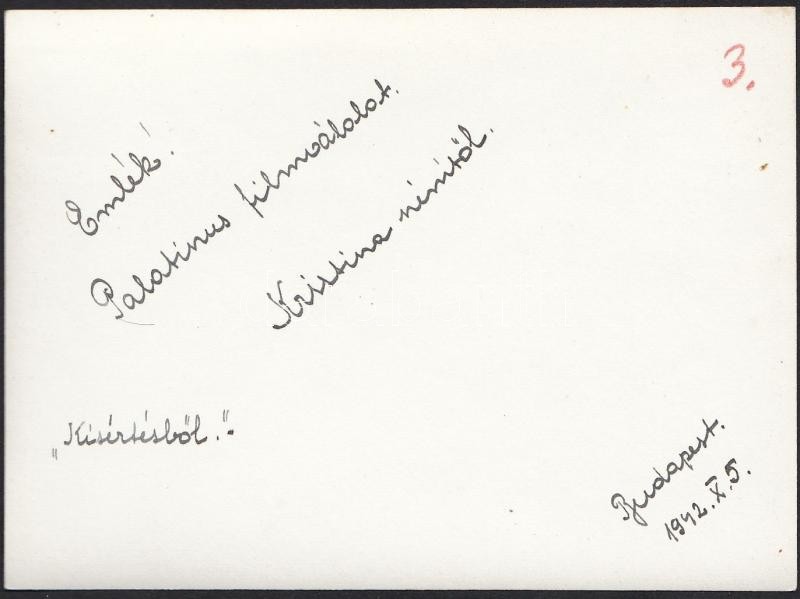 3.
Emlék!
Palatinus filmválalat.
Krisztina nénitől.
"Kisértésből."
Budapest.
1942. X. 5.